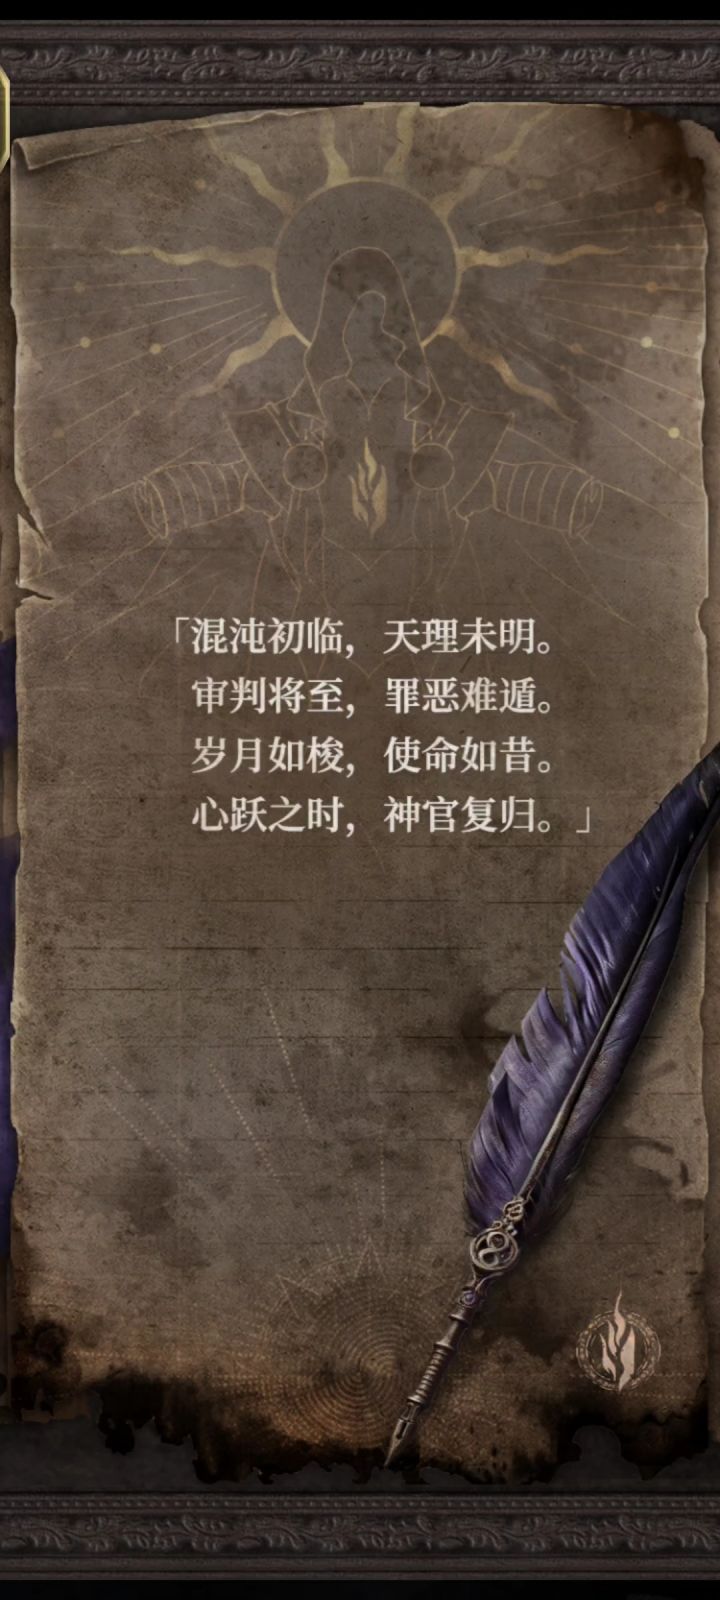 「混沌初临，天理未明。
审判将至，罪恶难遁。
岁月如梭，使命如昔。
心跃之时，神官复归。」